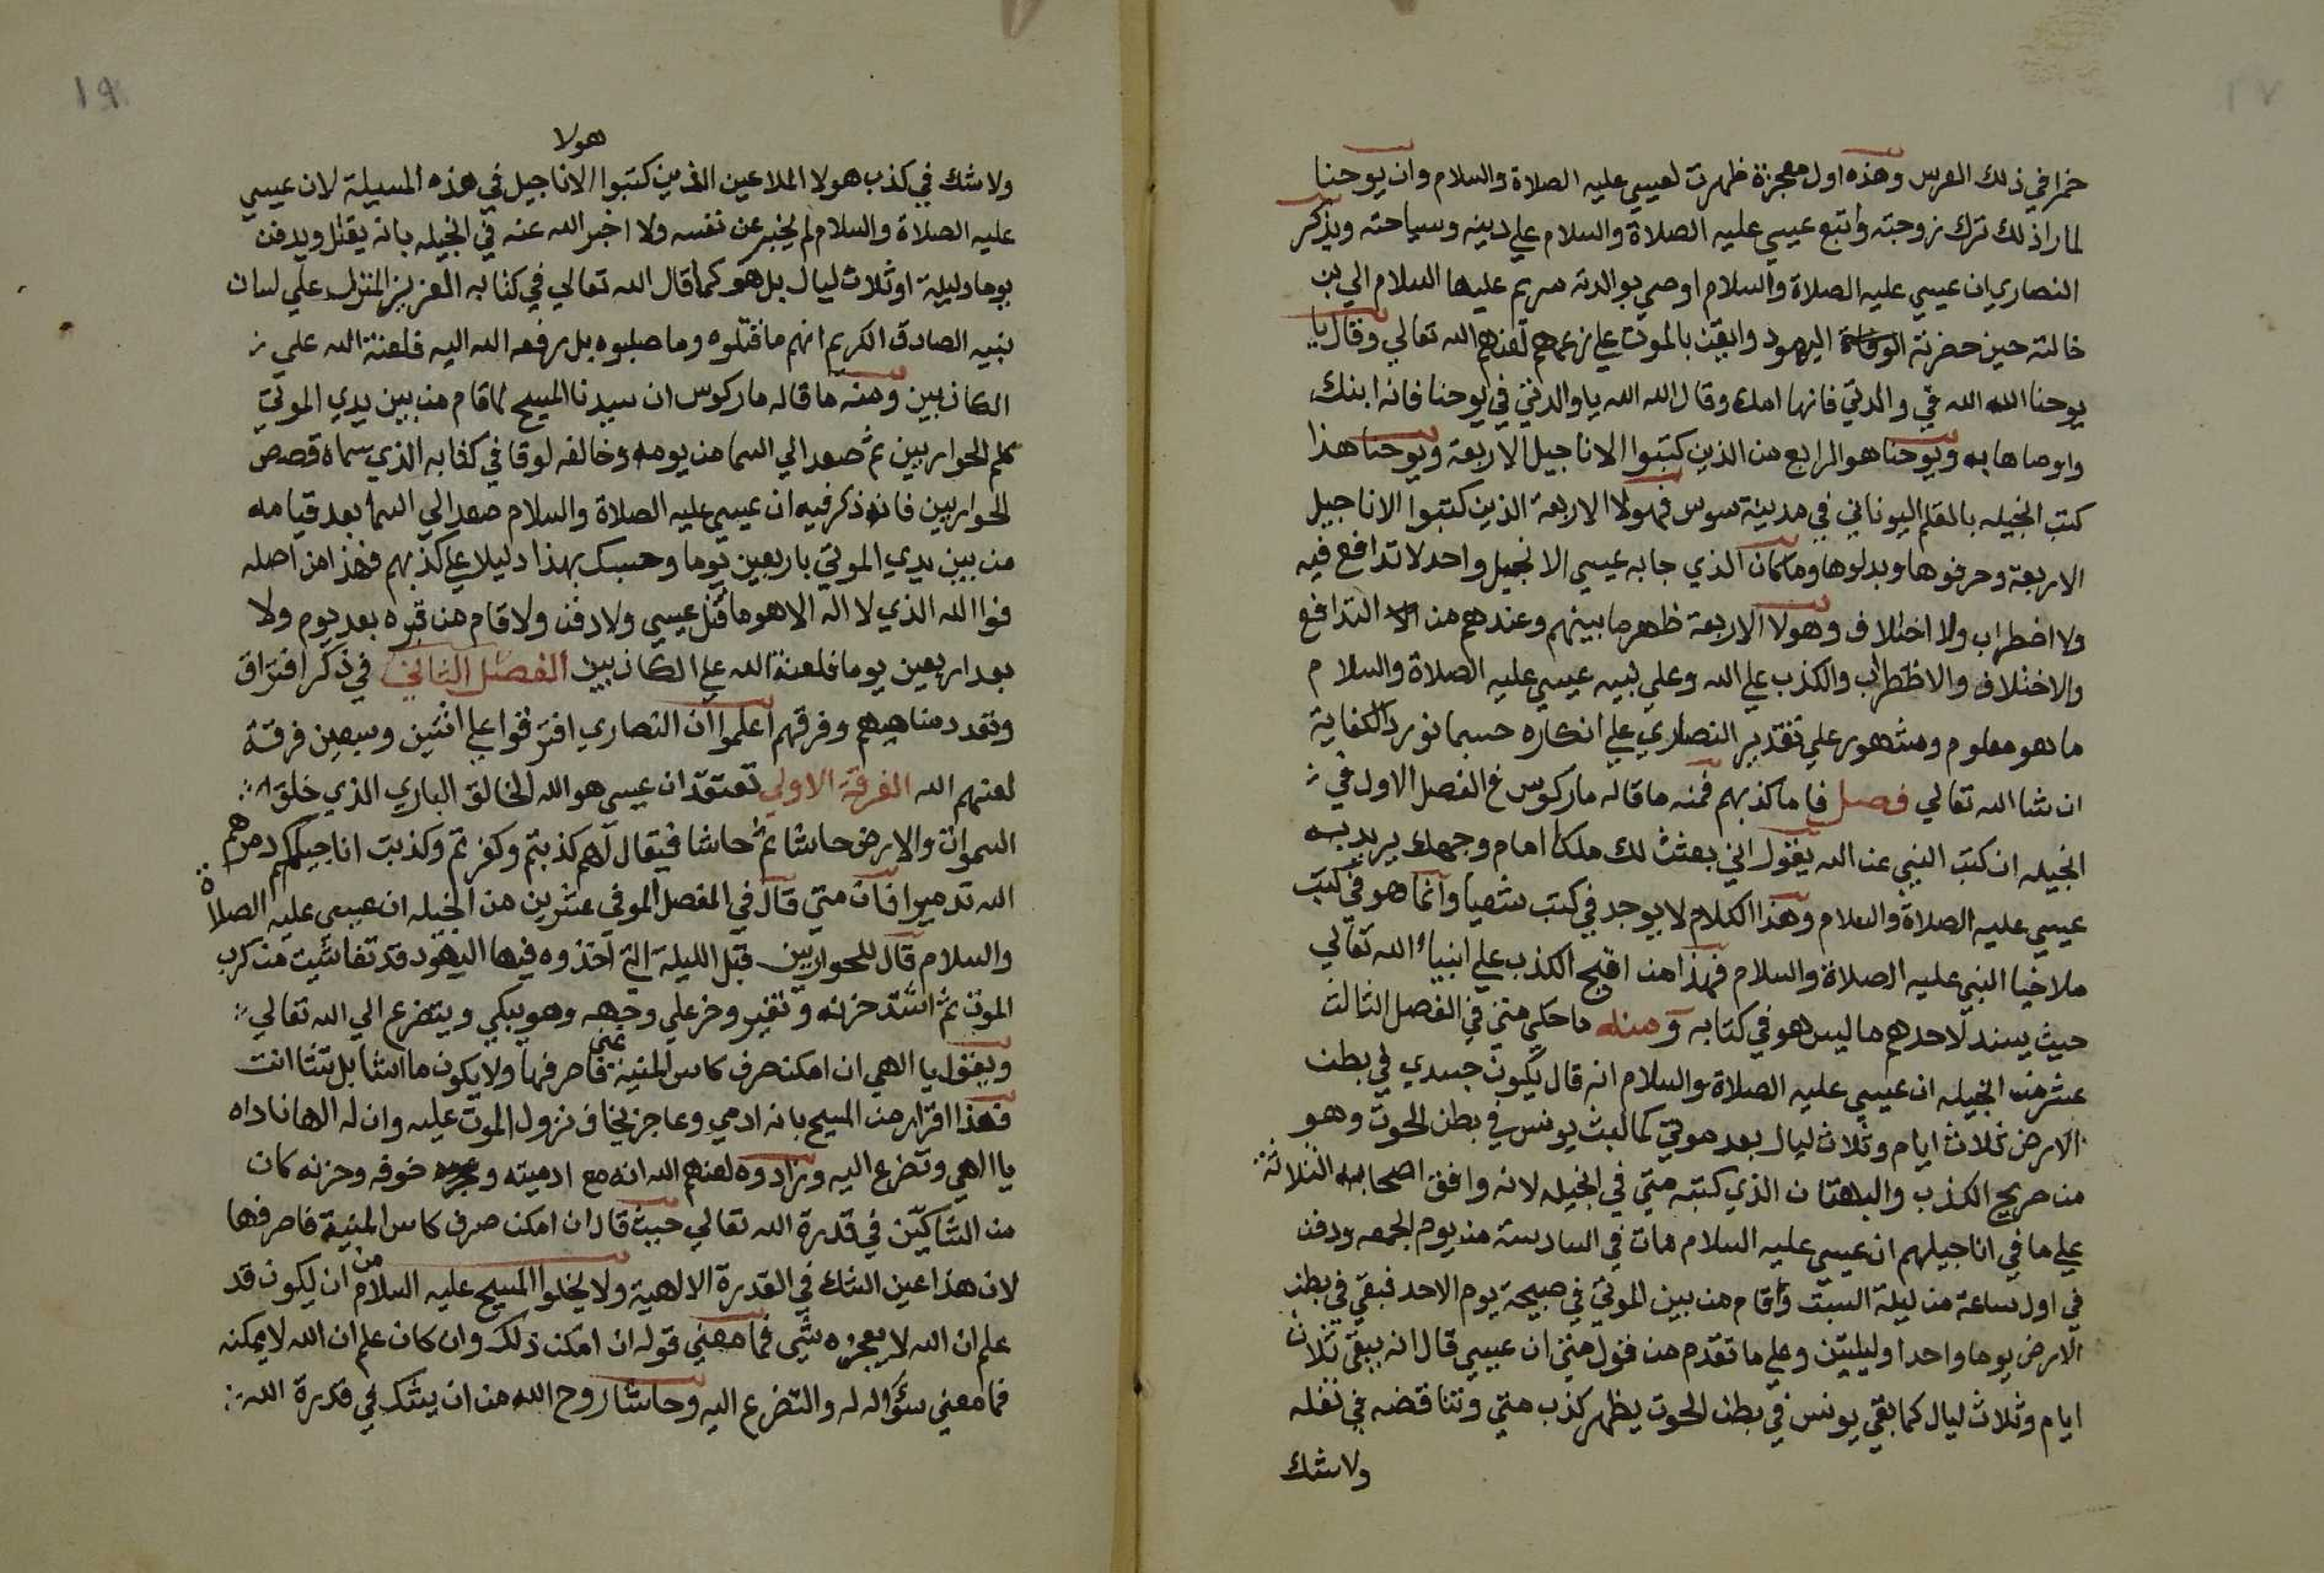 خمرا في ذلك العرس وهذه اول معجزة ظهرت لعيسي عليه الصلاة والسلام وان يوحنا
لما راذلك ترك زوجته واتبع عيسي عليه الصلاة والسلام علي دينه وسياحته ويذكر
النصاري ان عيسي عليه الصلاة والسلام اوصي بوالدته مريم عليها السلام الي بن
خالته حين حضرته اليهود وايقن بالموت علي زعمهم لعنهم الله تعالي وقال يا
يوحنا الله الله في والدتي فانها امك وقال الله الله يا والدتي في يوحنا فانه ابنك
واوصاها به ويوحنا هو الرابع من الذين كتبوا الاناجيل الاربعة ويوحنا هذا
كتب انجيله بالقلم اليوناني في مدينة سوس فهولا الاربعة الذين كتبوا الاناجيل
الاربعة وحرفوها وبدلوها وما كان الذي جا به عيسي الا نجيل واحد لا تدافع فيه
ولا اضطراب ولا اختلاف وهولا الاربعة ظهر ما بينهم وعندهم من التدافع
والاختلاف والاظطراب والكذب علي الله وعلي نبيه عيسي عليه الصلاة والسلام
ما هو معلوم ومشهور علي تقدير النصاري علي انكاره حسبما نورد الكفاية
ان شا الله تعالي فصل فاما كذبهم فمنه ما قاله ماركوس في الفصل الاول في
انجيله ان كتب النبي عن الله يقول اني بعثت لك ملكا امام وجهك يريد به
عيسي عليه الصلاة والسلام وهذا الكلام لا يوجد في كتب شعيا وانما هو في كتب
ملاخيا النبي عليه الصلاة والسلام فهذا من اقبح الكذب علي انبياء الله تعالي
حيث يسند لاحدهم ما ليس هو في كتابه ومنه ما حكي متي في الفصل الثالث
عشر من انجيله ان عيسي عليه الصلاة والسلام انه قال يكون جسدي في بطن
الارض ثلاث ايام وثلاث ليال بعد موتي كما لبث يونس في بطن الحوت وهو
من صريح الكذب والبهتان الذي كتبه متي في انجيله لانه وافق اصحابه الثلاثة
علي ما في اناجيلهم ان عيسي عليه السلام مات في السادسة من يوم الجمعه ودفن
في اول ساعة من ليلة السبت وقام من بين الموتي في صبيحة يوم الاحد فبقي في بطن
الارض يوما واحدا وليلتين وعلي ما تقدم من قول متي ان عيسي قال انه يبقي ثلاث
ايام وثلاث ليال كما بقي يونس في بطن الحوت يظهر كذب متي وتناقضه في نقله
ولا شك
١٩
هولا
ولا شك في كذب هولا الملاعين الذين كتبوا الاناجيل في هذه المسيلة لان عيسي
عليه الصلاة والسلام لم يخبر عن نفسه ولا اخبر الله عنه في انجيله بانه يقتل ويدفن
يوما وليلة او ثلاث ليال بل هو كما قال الله تعالي في كتابه العزيز المنزل علي لسان
نبيه الصادق الكريم انهم ما قتلوه وما صلبوه بل رفعه الله اليه فلعنة الله علي
الكاذبين ومنه ما قاله ماركوس ان سيدنا المسيح لما قام من بين يدي الموتي
كلم الحواريين ثم صعد الي السما من يومه وخالفه لوقا في كتابه الذي سماه قصص
الحواريين فانه ذكر فيه ان عيسي عليه الصلاة والسلام صعد الي السما بعد قيامه
من بين يدي الموتي باربعين يوما وحسبك بهذا دليلا علي كذبهم فهذا من اصله
فوا الله الذي لا اله الا هو ما قتل عيسي ولا دفن ولا قام من قبره بعد يوم ولا
بعد اربعين يوما فلعنة الله علي الكاذبين الفصل الثاني في ذكر افتراق
وتعدد مذاهبهم وفرقهم اعلموا ان النصاري افترقوا علي اثنين وسبعين فرقة
لعنهم الله الفرقة الاولي تعتقد ان عيسي هو الله الخالق الباري الذي خلق
السموات والارض حاشا ثم حاشا فيقال لهم كذبتم وكفرتم وكذبت اناجيلكم دمرهم
الله تدميرا فان متي قال في الفصل الموفي عشرين من انجيله ان عيسي عليه الصلاة
والسلام قال للحواريين قبل الليلة التي اخذوه فيها اليهود قد تغاشيت من كرب
الموت ثم اشتد حزنه وتغير وخر علي وجهه وهو يبكي ويتضرع الي الله تعالي
ويقول يا الهي ان امكن صرف كاس المنية عني فاصرفها ولا يكون ما اشا بل تشا انت
فهذا اقرار من المسيح بانه ادمي وعاجز يخاف نزول الموت عليه وان له الها ناداه
يا الهي وتضرع اليه وزادوه لعنهم الله انه مع ادميته وعجزه خوفه وحزنه كان
من الشاكين في قدرة الله تعالي حيث قال ان امكن صرف كاس المنية فاصرفها
لان هذا عين الشك في القدرة الالهية ولا يخلوا المسيح عليه السلام من ان يكون قد
علم ان الله لا يعجزه شي فما معني قوله ان امكن ذلك وان كان علم ان الله لا يمكنه
فما معني سؤاله له والتضرع اليه وحاشا روح الله من ان يشك في قدرة الله